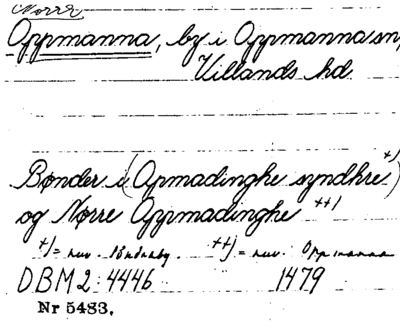 Norra
Oppmanna, by i Oppmanna sn,
Villands hd.
Bønder i (Opmadinghe syndhre +))
og Nørre Oppmadinghe ++)
+) = nuv. ++) = nuv. Oppmanna
DBM 2: 4446 1479
Nr 5483.